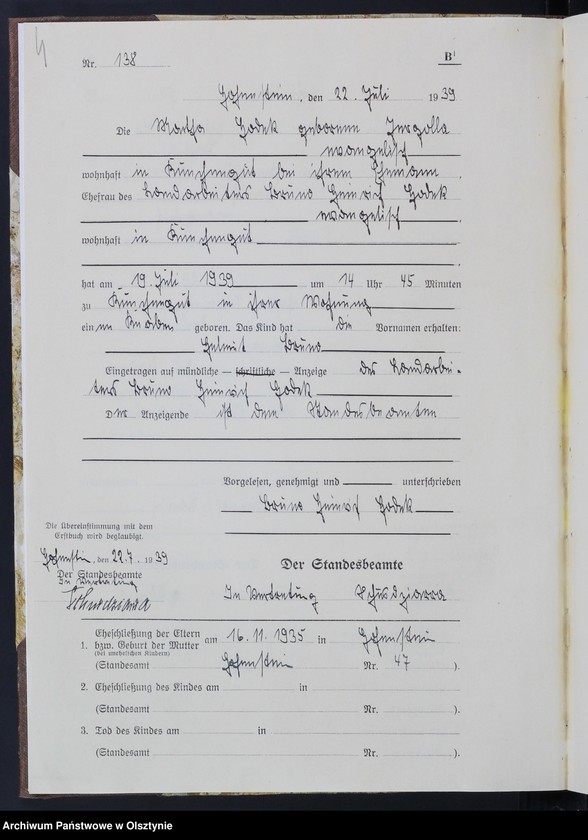 4
Nr. 138 B¹
Hohenstein, den 22. Juli 1939
Die Martha Godek geborene Jergolla
evangelisch
wohnhaft in Kunchengut bei ihrem Ehemann
Ehefrau des Landarbeiters Bruno Heinrich Godek
evangelisch
wohnhaft in Kunchengut
hat am 19. Juli 1939 um 14 Uhr 45 Minuten
zu Kunchengut in ihrer Wohnung
einen Knaben geboren. Das Kind hat die Vornamen erhalten:
Helmut Bruno
Eingetragen auf mündliche — schriftliche — Anzeige des Landarbei-
ters Bruno Heinrich Godek
Der Anzeigende ist dem Standesbeamten
Vorgelesen, genehmigt und unterschrieben
Bruno Heinrich Godek
Die Übereinstimmung mit dem
Erstbuch wird beglaubigt.
Hohenstein, den 22.7. 1939
Der Standesbeamte
In Vertretung
Der Standesbeamte
In Vertretung
1. Eheschließung der Eltern am 16. 11. 1935 in Hohenstein
bzw. Geburt der Mutter
(bei unehelichen Kindern)
(Standesamt Hohenstein Nr. 47 ).
2. Eheschließung des Kindes am in
(Standesamt Nr. ).
3. Tod des Kindes am in
(Standesamt Nr. ).
Archiwum Państwowe w Olsztynie